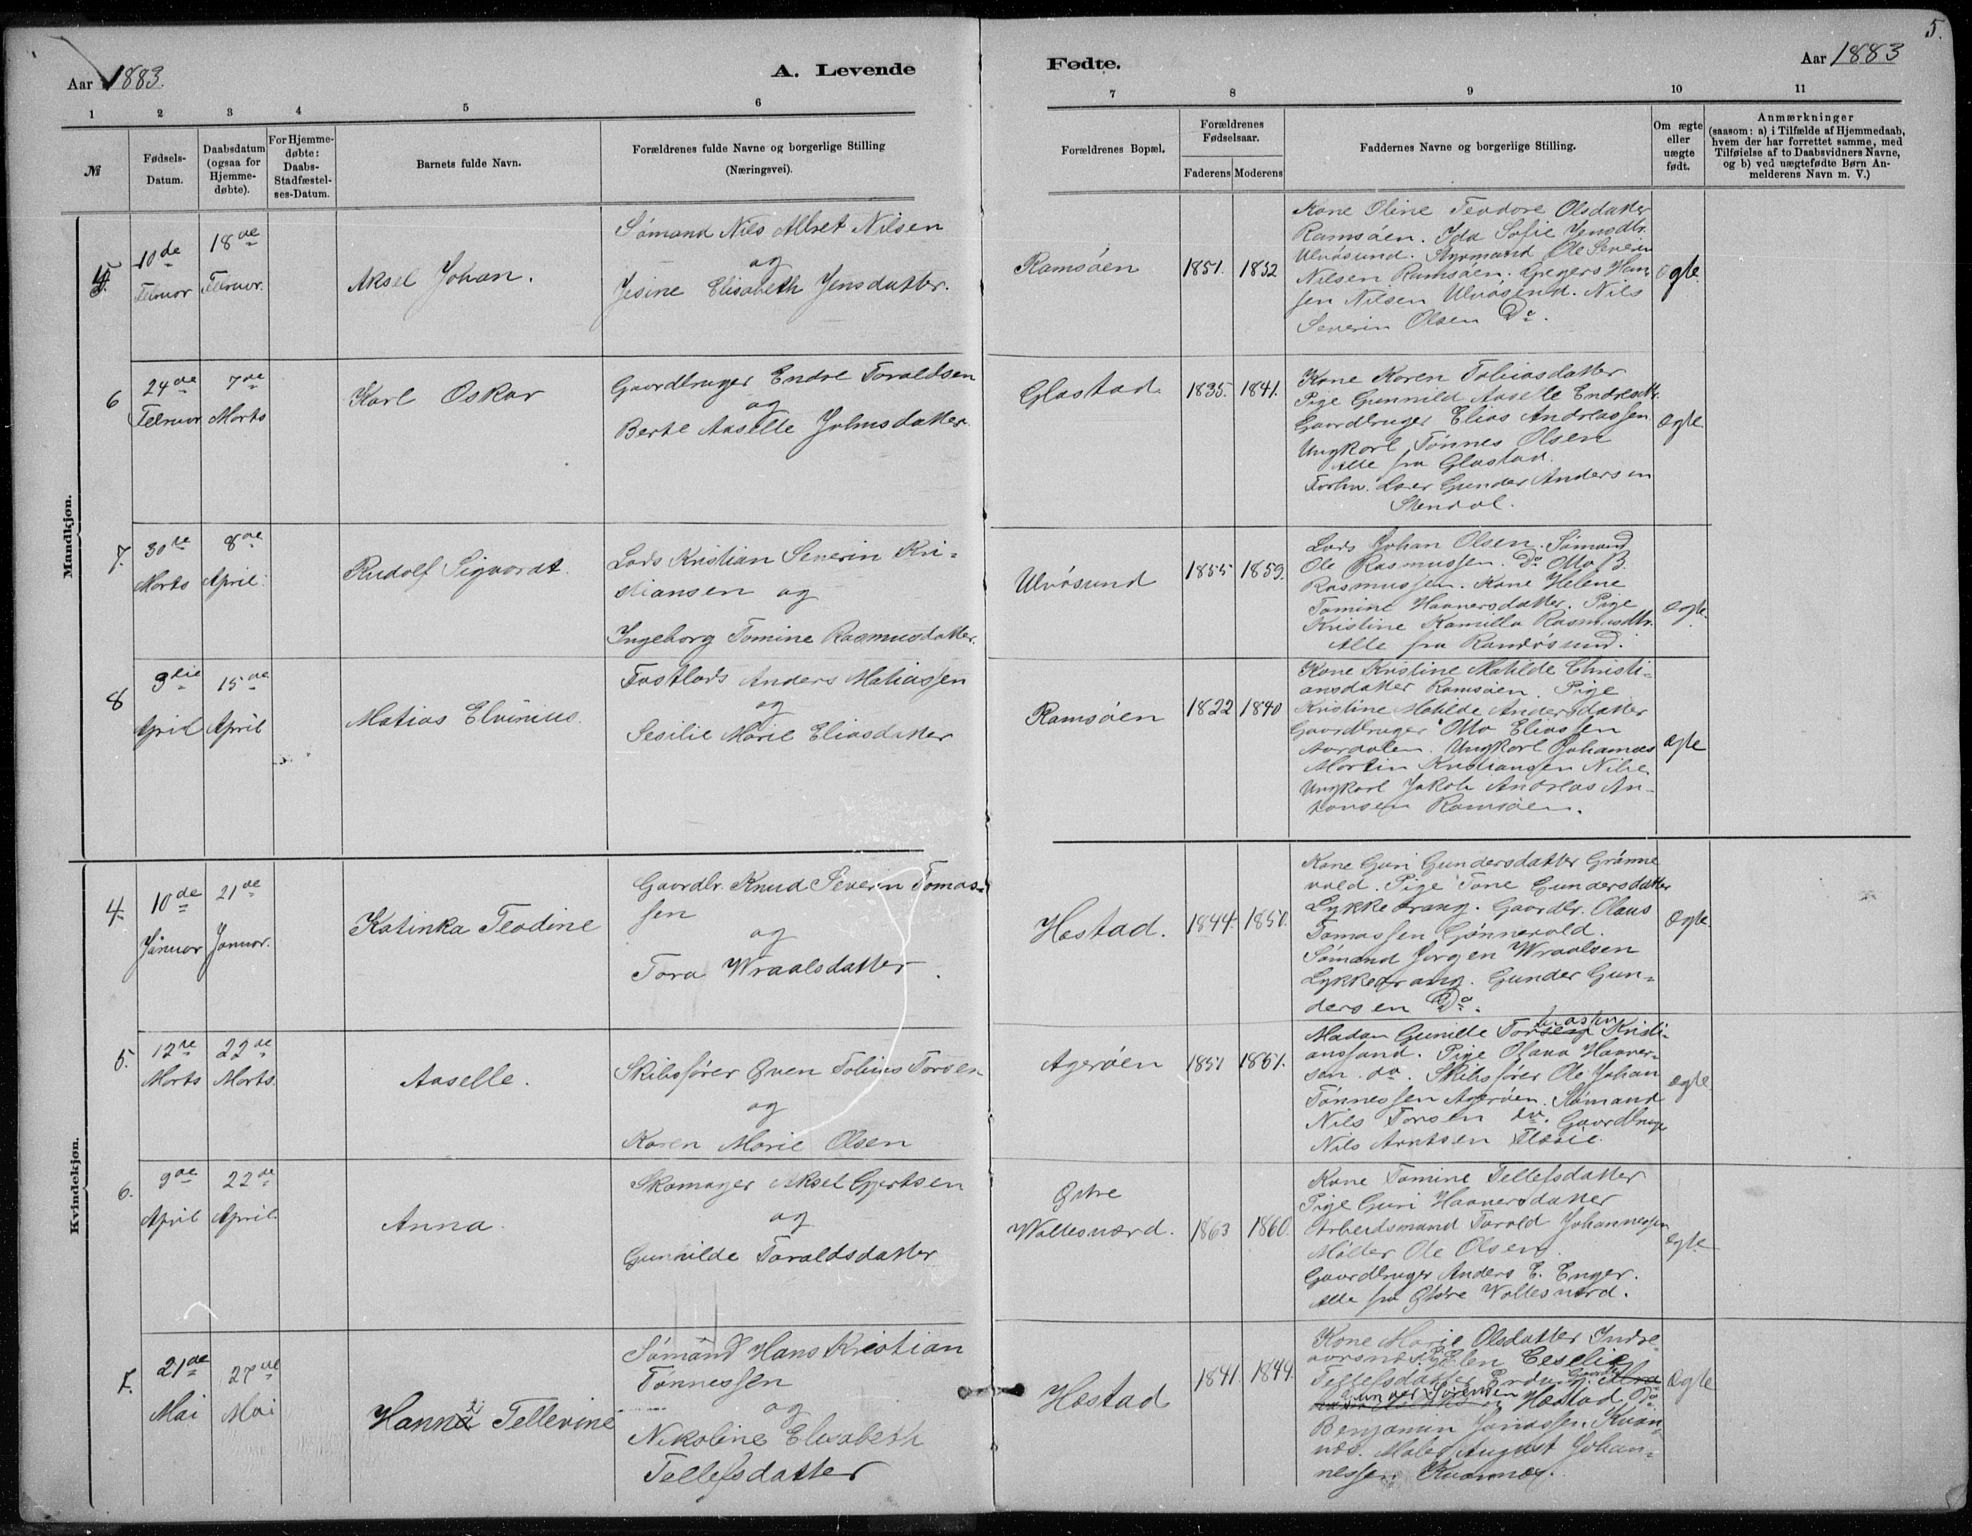 5.
Aar 1883.
A. Levende
Fødte.
Aar 1883
1 2 3 4 5 6 7 8 9 10 11
№
Fødsels-
Datum.
Daabsdatum
(ogsaa for
Hjemme-
døbte).
For Hjemme-
døbte:
Daabs-
Stadfæstel-
ses-Datum.
Barnets fulde Navn.
Forældrenes fulde Navne og borgerlige Stilling
(Næringsvei).
Forældrenes Bopæl.
Forældrenes
Fødselsaar.
Faderens Moderens
Faddernes Navne og borgerlige Stilling
Om ægte
eller
uægte
født.
Anmærkninger
(saasom: a) i Tilfælde af Hjemmedaab,
hvem der har forrettet samme, med
Tilføielse af to Daabsvidners Navne,
og b) ved uægtefødte Børn An-
melderens Navn m. V.)
Mandkjøn.
5.
10de
Februar
18de
Februar.
Aksel Johan.
Sømand Nils Albret Nilsen
og
Jesine Elisabeth Jensdatter.
Ramsøen
1851. 1852
Kone Oline Teodore Olsdatter
Ramsøen. Ida Sofie Jensdtr.
Ulvøsund. Styrmand Ole Severin
Nilsen Ramsøen. Gregers Han
sen Nilsen Ulvøsund. Nils
Severin Olsen Do.
ægte.
6
24de
Februar
7de
Marts
Karl Oskar
Gaardbruger Endre Taraldsen
og
Berte Aaselle Johnsdatter.
Glastad
1835. 1841.
Kone Karen Tobiasdatter
Pige Gunnild Aaselle Endresdtr.
Gaardbruger Elias Andreassen
Ungkarl Tønnes Olsen
Alle fra Glastad.
Forhv. Lærer Gunder Andersen
Stendal.
ægte.
7.
30te
Marts
8de
April.
Rudolf Sigvardt.
Lods Kristian Severin Kri-
stiansen og
Ingeborg Tomine Rasmusdatter.
Ulvøsund
1855 1859.
Lods Johan Olsen. Sømand
Ole Rasmussen. Do Otto B.
Rasmussen. Kone Helene
Tomine Haaversdatter. Pige
Kristine Kamilla Rasmusdtr.
Alle fra Randøsund.
ægte.
8
April
15de
April
Matias Elvinius.
Fastlods Anders Matiassen
og
Sesilie Marie Eliasdatter
Ramsøen
1822 1840
Kone Kristine Matilde Christi-
ansdatter Ramsøen. Pige
Kristine Matilde Andersdatter
Gaardbruger Otto Eliassen
Aardalen. Ungkarl Johannes
Martin Kristiansen Nibe
Ungkarl Jakob Andreas An-
tonsen Ramsøen.
ægte
Kvindekjøn.
4.
10de
Januar
21de
Januar.
Katinka Teodine
Gaardbr. Knud Severin Tomas-
sen
og
Tora Wraalsdatter.
Hæstad.
1844. 1850.
Kone Guri Gundersdatter Grønne
vold. Pige Tone Gundersdatter
Lykkedrang. Gaardbr. Olaus
Tomassen Grønnevold.
Sømand Jørgen Wraalsen
Lykkedrang. Gunder Gun-
dersen Do.
ægte.
5.
12te
Marts
22de
Marts.
Aaselle.
Skibsfører Even Tobias Torsen
og
Karen Marie Olsen
Agerøen
1857 1861.
Madam Gunille Kristi-
anssand. Pige Olava Haaver-
sen do. Skibsfører Ole Johan
Tønnessen Agerøen. Sømand
Nils Torsen do. Gaardbruger
Nils Arntsen
ægte.
6.
9de
April
22de
April.
Anna.
Skomager Aksel Gjertsen
og
Gunhilde Taraldsdatter
Østre
Vallesværd.
1863 1860.
Kone Tomine Tellefsdatter
Pige Guri Haaversdatter
Arbeidsmand Tarald Johannessen
Møller Ole Olsen.
Gaardbruger Anders E. Enger.
Alle fra Østre Vallesværd.
ægte.
7.
21de
Mai
27de
Mai
Hanna Tellevine
Sømand Hans Kristian
Tønnessen
og
Nikoline Elisabeth
Tellefsdatter
Hæstad
1841. 1844.
Kone Marie Olsdatter Indre
Pige Elen Ceselie
Tellefsdatter
Gunder Sørensen Hæstad. Do
Benjamin Jonassen Kvan-
næs. Maler August Johan-
nessen Kvannæs.
ægte